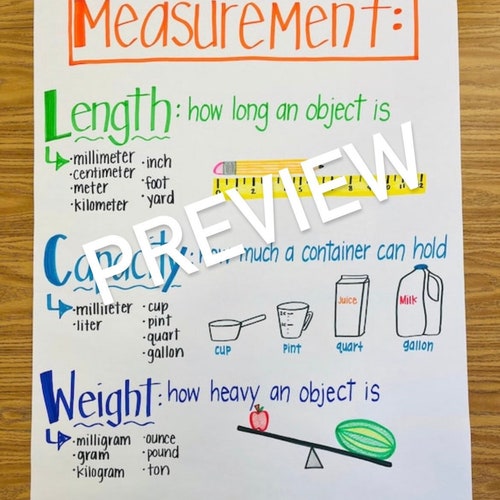 Measurement:
Length: how long an object is
·millimeter ·inch
·centimeter
·meter ·foot
·kilometer ·yard
PREVIEW
Capacity: how much a container can hold
·milliliter ·cup
·liter ·pint
·quart
·gallon
Juice Milk
cup pint quart gallon
Weight: how heavy an object is
·milligram ·ounce
·gram ·pound
·kilogram ·ton